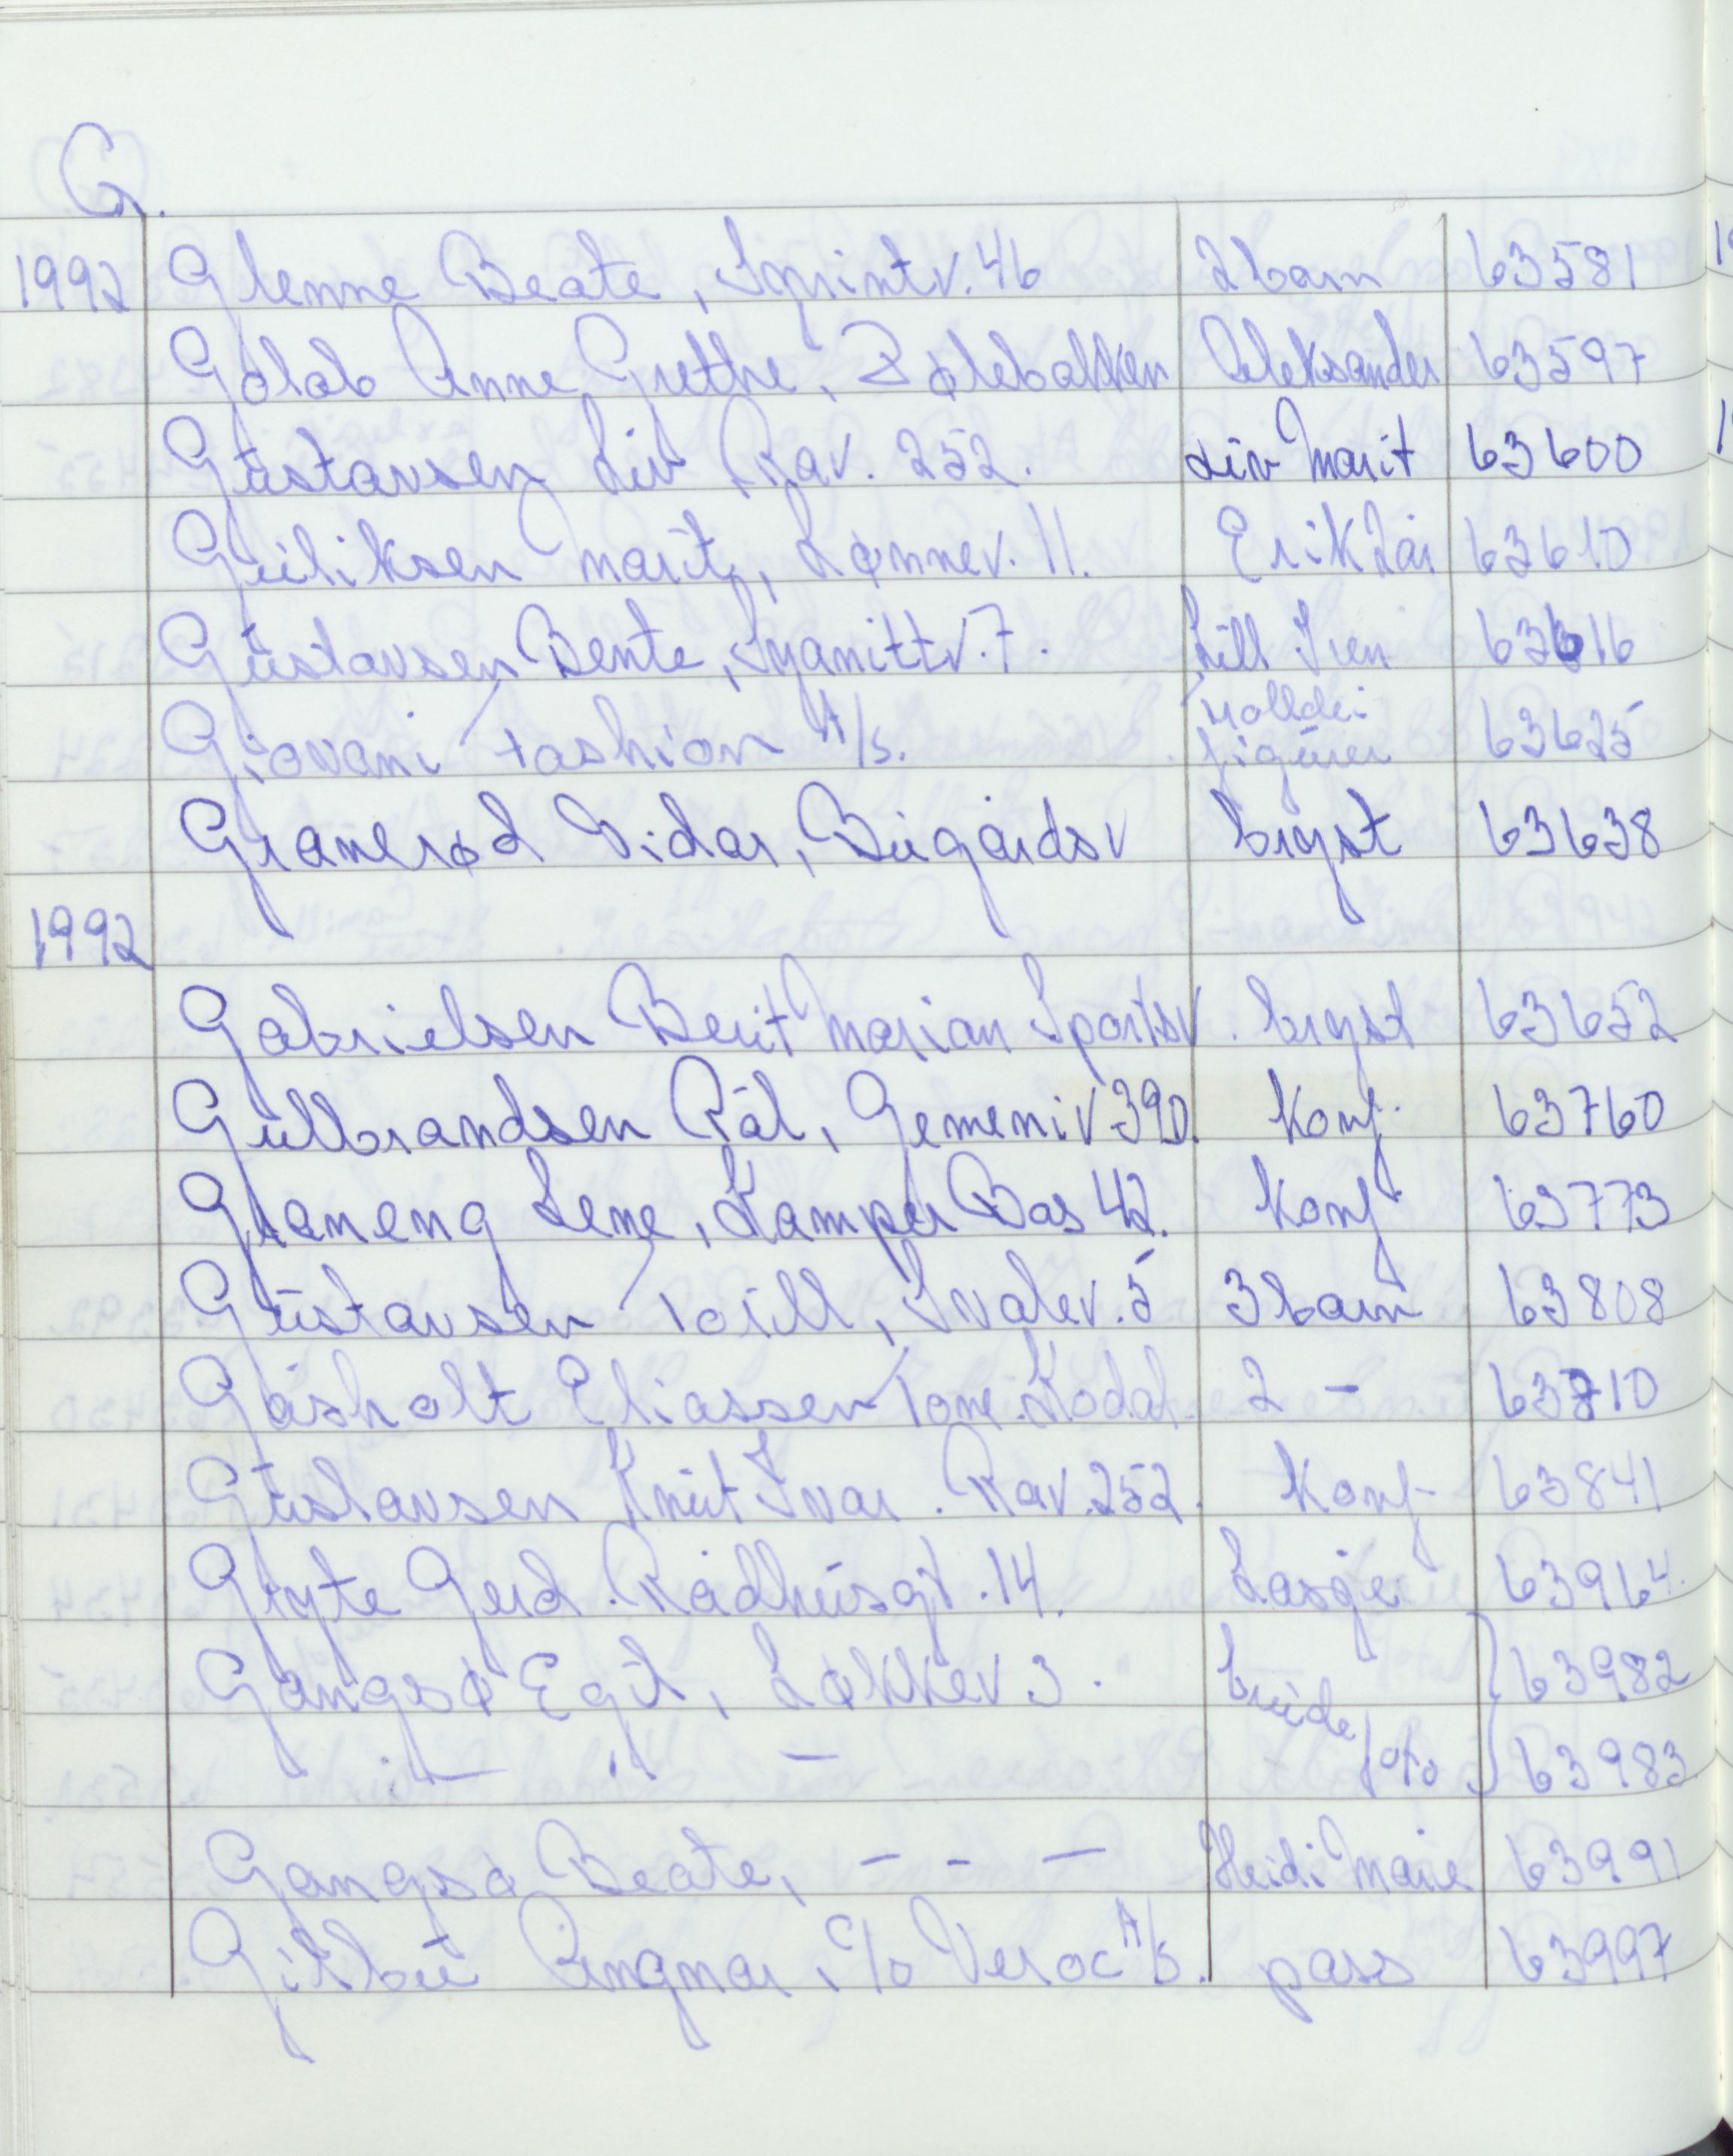 G.
1992 Glenne Beate, Sprintv. 46 2 barn 63581
Golab Anne Grethe, Aleksander 63597
Gustavsen Liv Rav. 252. Liv Marit 63600
Guliksen Marit, Lønnev. 11. Erik 63610
Gustavsen Bente, Syanittv. 7. Lill Iren 63616
Giovani Fashion A/S. figurer 63625
Granerød Vidar, Bugårdsv bryst 63638
1992
Gabrielsen Berit Marian Sportsv. bryst 63652
Gulbrandsen Pål, Gemeniv 39D. Konf. 63760
Graneng Lene, Kamper Bas 42. Konf 63773
Gustavsen Torill, Svalev. 5 3 barn 63808
Gåsholt Eliassen Tone. Kodal. 2 - 63810
Gustavsen Knut Ivar. Rav. 252. Konf- 63841
Gryte Gerd. Rådhusgt. 14. 63964.
Gangsø Egil, Løkkev 3. brude 63982
-"- " - foto 63983
Gangsø Beate, - - - Heidi Marie 63991
Gilbu Ringmar, c/o Veroc A/S. pass 63997